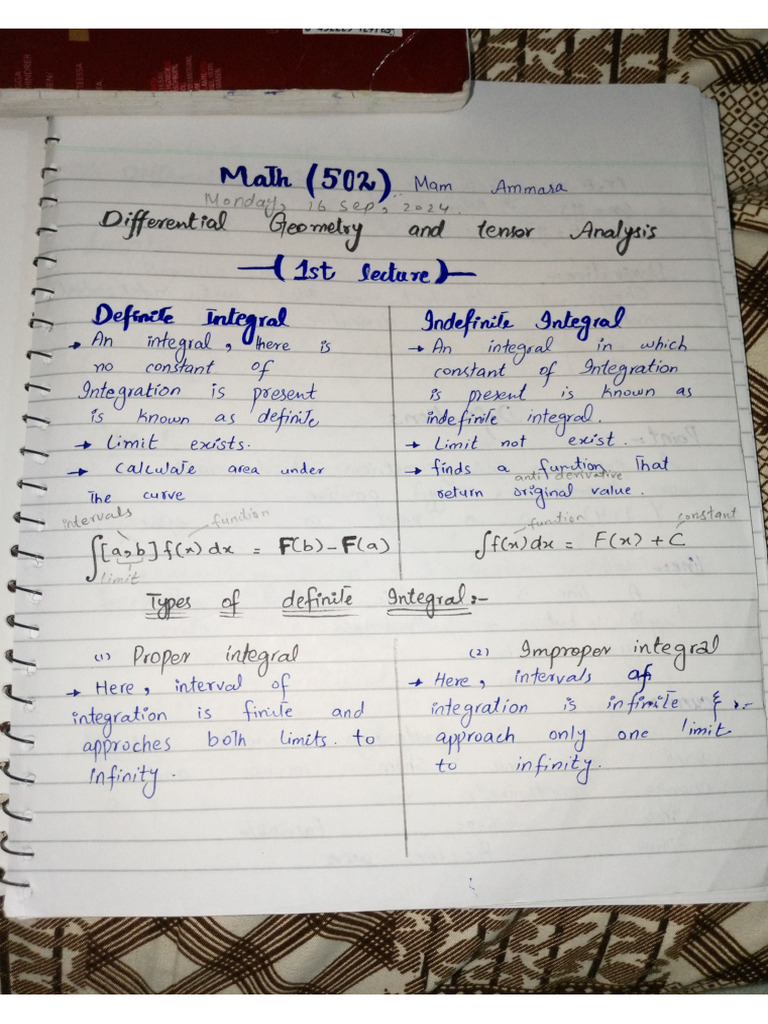 Math (502) Mam Ammara
Monday, 16 Sep, 2024.
Differential Geometry and tensor Analysis
(1st lecture)
Definite Integral
→ An integral, there is
no constant of
Integration is present
is known as definite
→ Limit exists.
→ Calculate area under
The curve
intervals function
∫[a,b] f(x) dx = F(b) - F(a)
limit
Indefinite Integral
→ An integral in which
constant of Integration
is present is known as
indefinite integral.
→ Limit not exist.
→ finds a function That
anti derivative
return original value.
function constant
∫f(x)dx = F(x) + C
Types of definite Integral:-
(1) Proper integral
→ Here, interval of
integration is finite and
approches both limits. to
infinity.
(2) Improper integral
→ Here, intervals of
integration is infinite & :-
approach only one limit
to infinity.